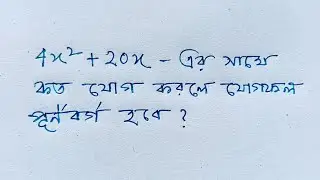 4x² + 20x - এর সাথে
কত যোগ করলে যোগফল
পূর্নবর্গ হবে ?